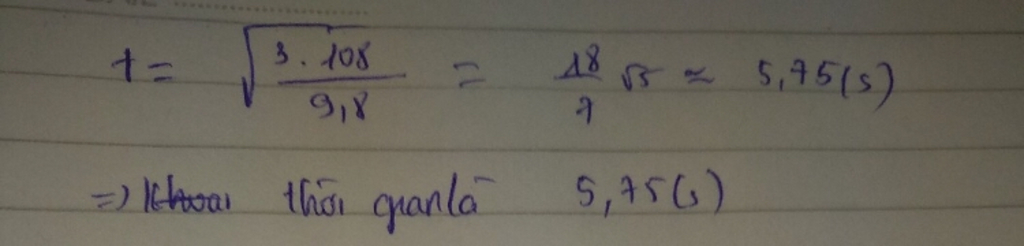 t = √(3.108/9,8) = 18/7 √5 ≈ 5,75(s)
=) Khoải thời gian là 5,75(s)